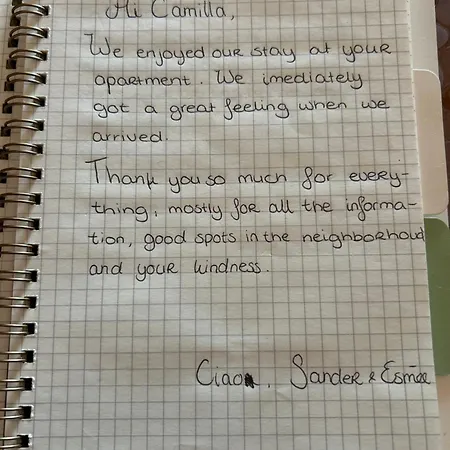 Hi Camilla,
We enjoyed our stay at your
apartment. We imediately
got a great feeling when we
arrived.
Thank you so much for every-
thing, mostly for all the informa-
tion, good spots in the neighborhoud
and your kindness.
Ciao, Sander & Esmée